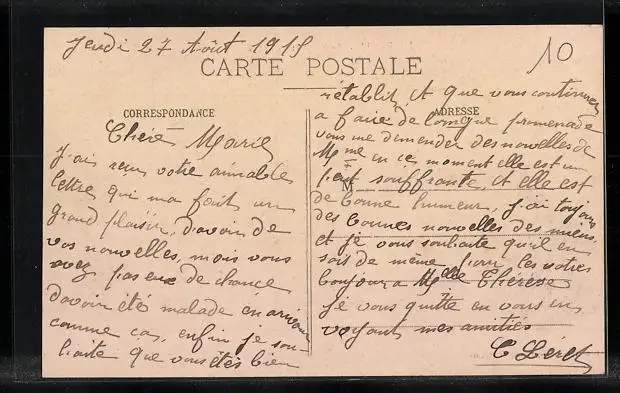 Jeudi 27 Août 191
10
CARTE POSTALE
CORRESPONDANCE
Chère Marie
J'ai reçu votre aimable
lettre qui ma fait un
grand plaisir, d'avoir de
vos nouvelles, mais vous
avez pas eue de chance
d'avoir été malade en arrivant
comme ça, enfin je sou-
haite que vous êtes bien
rétablit, et que vous continuez
a faire de longue promenade
ADRESSE
vous me demender des nouvelles de
Mme en ce moment elle est un
M
peut souffrante, et elle est
de bonne humeur, j'ai toujours
des bonnes nouvelles des miens,
et je vous souhaite qu'il en
sois de même pour les votres
bonjour a Melle Thérèse
je vous quitte en vous en
voyant mes amitiés
C